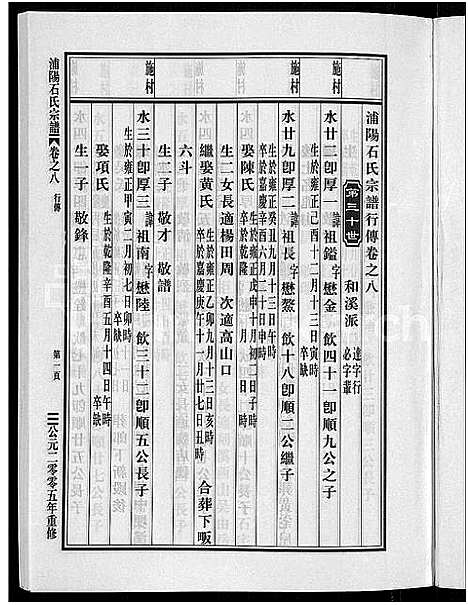 浦陽石氏宗譜行傳卷之八
第三十世
和溪派 達字行 必字輩
施村
水廿二卽厚一諱祖鎰字懋金 飲四十一卽順九公之子
生於雍正己酉十二月十三日寅時 卒缺
施村
水廿九卽厚二諱祖長字懋鰲 飲十八卽順二公繼子
生於雍正癸丑九月十三日午時
卒於嘉慶辛酉六月二十日申時
娶陳氏 生於雍正戊申十月初二日子時 卒於
生二女長適楊田周 次適高山口
繼娶黃氏 生於雍正乙卯九月十三日亥時 卒於嘉慶庚午十一月廿七日丑時 合葬下畈
六斗
生二子 敬才 敬譜
施村
水三十卽厚三諱祖南字懋陸 飲三十二卽順五公長子
生於雍正甲寅二月初七日卯時 卒缺
娶項氏 生於乾隆辛酉五月十四日午時 卒缺
生一子 敬鋒
浦陽石氏宗譜 卷之八 行傳
第一頁
公元二零零五年重修